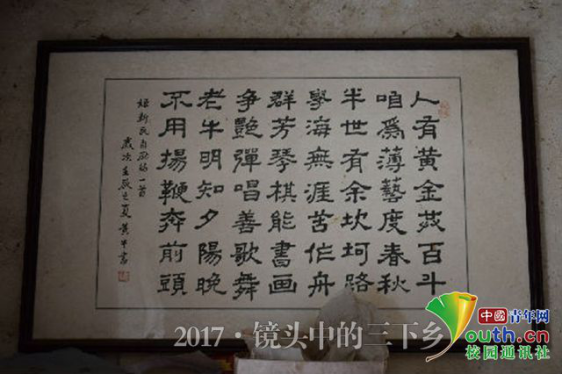 人有黃金百斗
咱為薄藝度春秋
半世有余坎坷路
學海無涯苦作舟
群芳琴棋能書画
争艷彈唱善歌舞
老牛明知夕陽晚
不用揚鞭奔前頭
新民自詩一首
歲次壬辰之夏黄牛書
2017·镜头中的三下乡
中國青年网
Youth.cn
校园通讯社